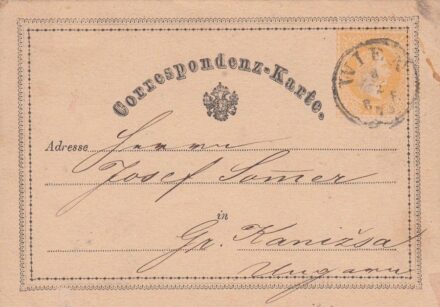 Correspondenz-Karte.
WIEN
Adresse Herrn
Josef Somer
in
Gr. Kanizsa
Ungarn